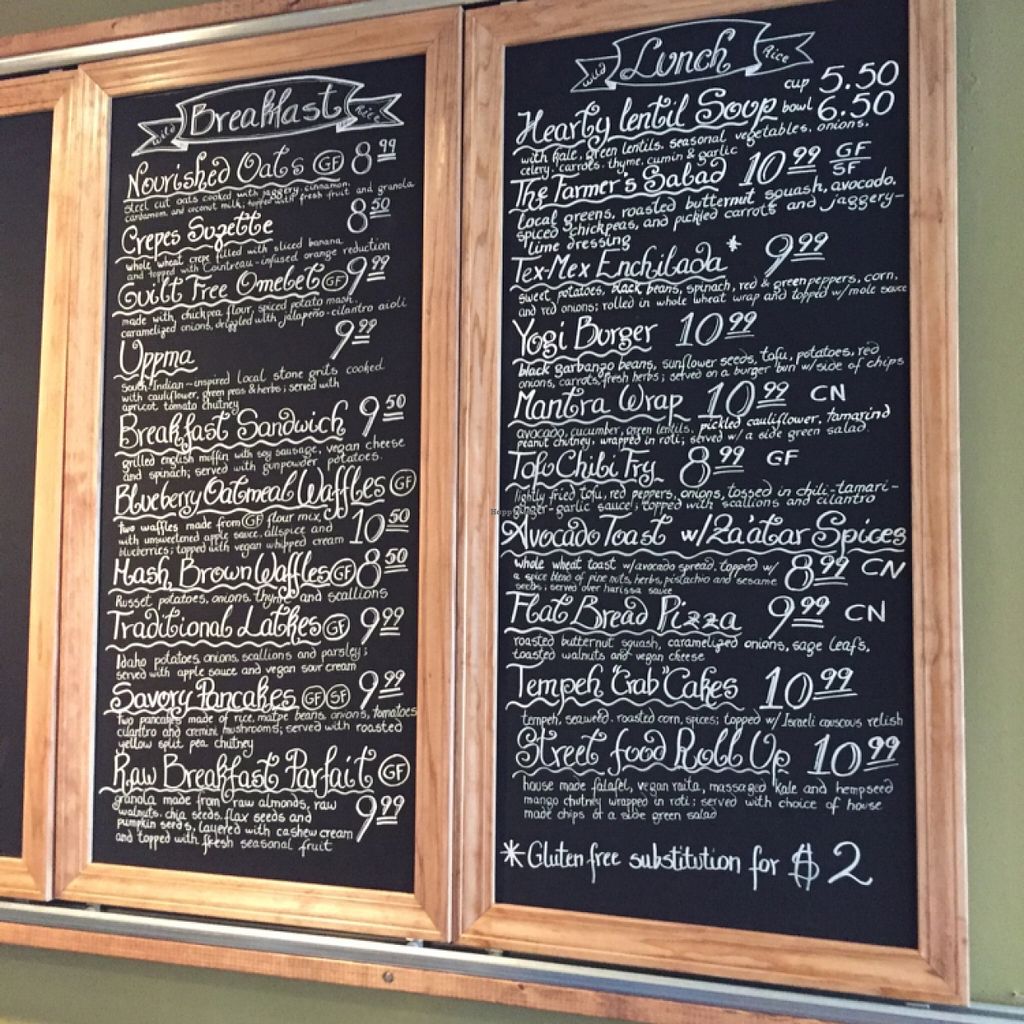 Wild Breakfast Rice
Nourished Oats GF 8.99
Steel cut oats cooked with jaggery, cinnamon,
cardamom, and coconut milk; topped with fresh fruit and granola
Crepes Suzette 8.50
whole wheat crepe filled with sliced banana
and topped with Cointreau-infused orange reduction
Guilt Free Omelet GF 9.99
made with chickpea flour, spiced potato mash,
caramelized onions, drizzled with jalapeño-cilantro aioli
Uppma 9.99
South Indian-inspired local stone grits cooked
with cauliflower, green peas & herbs; served with
apricot, tomato chutney
Breakfast Sandwich 9.50
grilled english muffin with soy sausage, vegan cheese
and spinach; served with gunpowder potatoes.
Blueberry Oatmeal Waffles GF
two waffles made from GF flour mix, 10.50
with unsweetened apple sauce, allspice and
blueberries; topped with vegan whipped cream
Hash Brown Waffles GF 8.50
Russet potatoes, onions, thyme and scallions
Traditional Latkes GF 9.99
Idaho potatoes, onions, scallions and parsley;
served with apple sauce and vegan sour cream
Savory Pancakes GF SF 9.99
Two pancakes made of rice, matpe beans, onions, tomatoes
cilantro and cremini mushrooms; served with roasted
yellow split pea chutney
Raw Breakfast Parfait GF
granola made from raw almonds, raw 9.99
walnuts, chia seeds, flax seeds and
pumpkin seeds, layered with cashew cream
and topped with fresh seasonal fruit
Wild Lunch Rice
Hearty lentil Soup cup 5.50
bowl 6.50
with kale, green lentils, seasonal vegetables, onions,
celery, carrots, thyme, cumin & garlic
The Farmer's Salad 10.99 GF SF
local greens, roasted butternut squash, avocado,
spiced chickpeas, and pickled carrots and jaggery-
lime dressing
Tex-Mex Enchilada * 9.99
sweet potatoes, black beans, spinach, red & green peppers, corn,
and red onions; rolled in whole wheat wrap and topped w/ mole sauce
Yogi Burger 10.99
black garbanzo beans, sunflower seeds, tofu, potatoes, red
onions, carrots, fresh herbs; served on a burger bun w/ side of chips
Mantra Wrap 10.99 CN
avocado, cucumber, green lentils, pickled cauliflower, tamarind
peanut chutney, wrapped in roti; served w/ a side green salad
Tofu Chibi Fry 8.99 GF
lightly fried tofu, red peppers, onions, tossed in chili-tamari-
ginger-garlic sauce; topped with scallions and cilantro
Avocado Toast w/Za'atar Spices
whole wheat toast w/avocado spread, topped w/ 8.99 CN
a spice blend of pine nuts, herbs, pistachio and sesame
seeds; served over harissa sauce
Flat Bread Pizza 9.99 CN
roasted butternut squash, caramelized onions, sage leafs,
toasted walnuts and vegan cheese
Tempeh "Crab" Cakes 10.99
tempeh, seaweed, roasted corn, spices; topped w/ Israeli couscous relish
Street food Roll Up 10.99
house made falafel, vegan raita, massaged kale and hempseed
mango chutney wrapped in roti; served with choice of house
made chips or a side green salad
*Gluten free substitution for $ 2